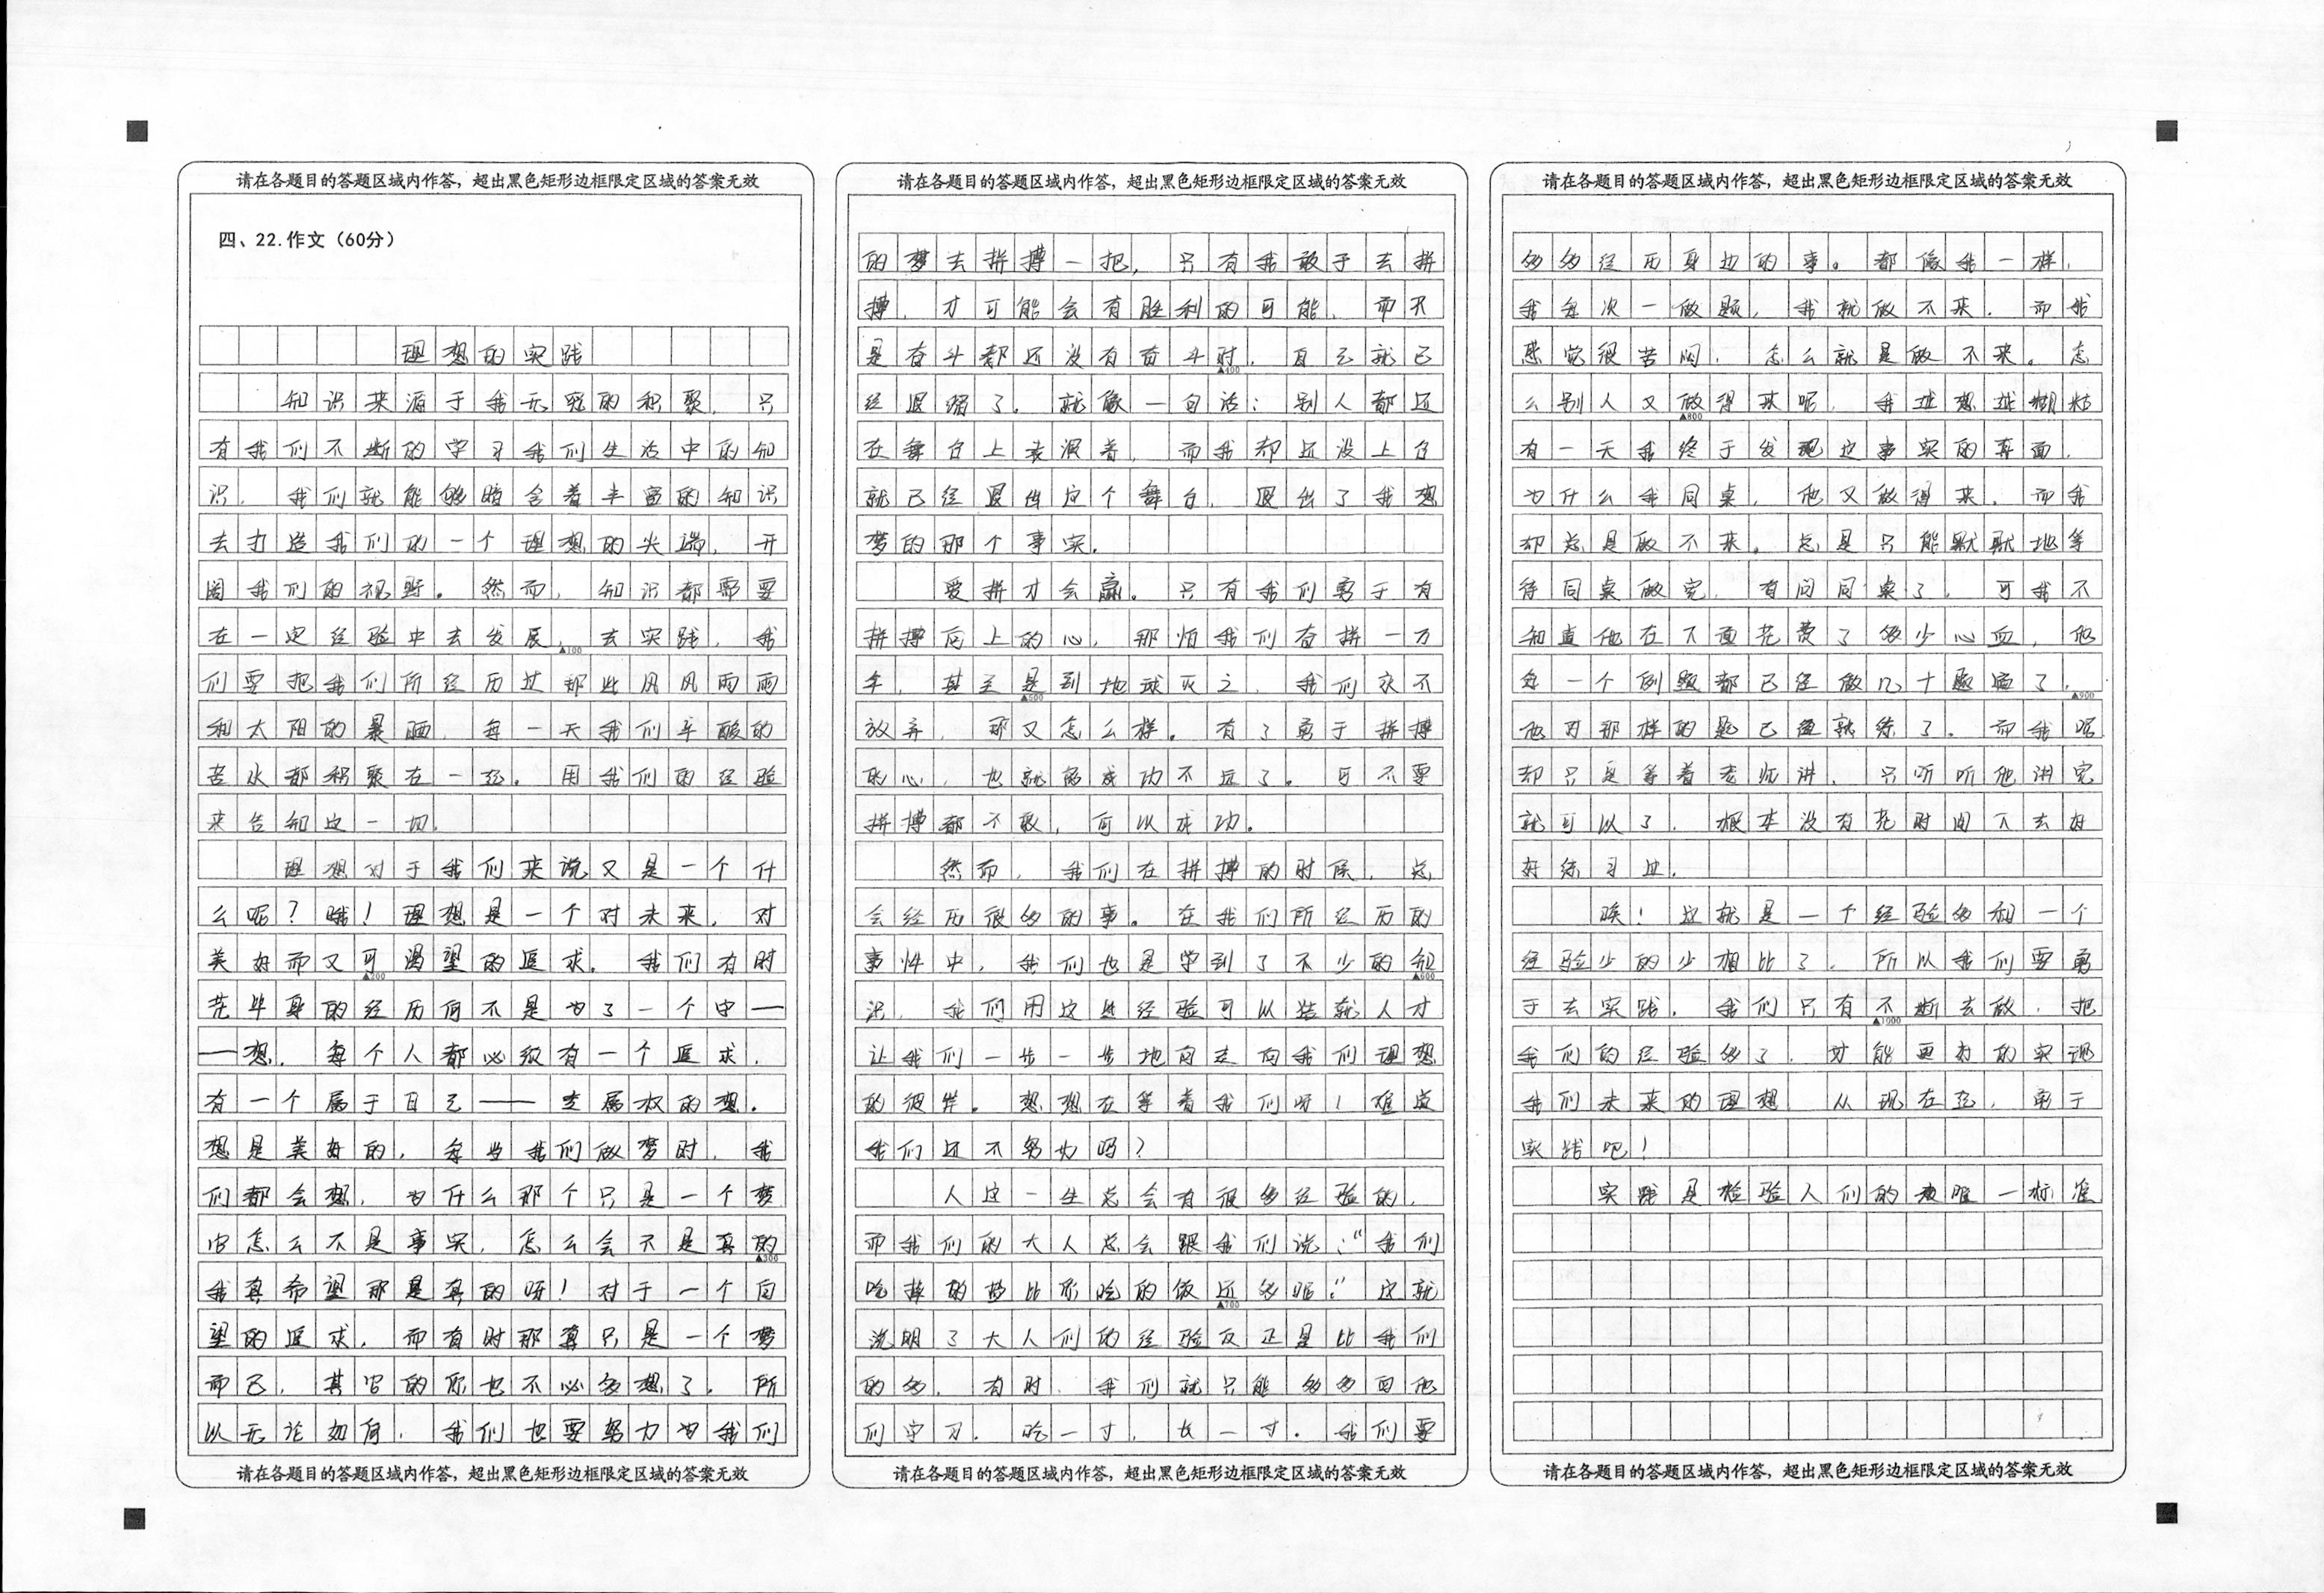 请在各题目的答题区域内作答，超出黑色矩形边框限定区域的答案无效
四、22.作文（60分）
理想的实践
知识来源于我无穷的积聚，只
有我们不断的学习我们生活中的知
识，我们就能够暗含着丰富的知识
去打造我们的一个理想的尖端，开
阔我们的视野。然而，知识都需要
在一定经验中去发展，去实践，我
▲100
们要把我们所经历过那些风风雨雨
和太阳的暴晒，每一天我们辛酸的
苦水都积聚在一起。用我们的经验
来告知这一切。
理想对于我们来说又是一个什
么呢？哦！理想是一个对未来，对
美好而又可渴望的追求。我们有时
▲200
花毕身的经历何不是为了一个中——
——想，每个人都必须有一个追求，
有一个属于自己——支属权的想。
想是美好的，每当我们做梦时，我
们都会想，为什么那个只是一个梦
它怎么不是事实，怎么会不是真的
▲300
我真希望那是真的呀！对于一个向
望的追求，而有时那真只是一个梦
而已，其它的你也不必多想了。所
以无论如何，我们也要努力为我们
请在各题目的答题区域内作答，超出黑色矩形边框限定区域的答案无效
请在各题目的答题区域内作答，超出黑色矩形边框限定区域的答案无效
的梦去拼搏一把，只有我敢于去拼
搏，才可能会有胜利的可能，而不
是奋斗都还没有奋斗时，自己就已
▲400
经退缩了。就像一句话：别人都还
在舞台上表演着，而我却还没上台
就已经退出这个舞台，退出了我想
梦的那个事实。
爱拼才会赢。只有我们勇于有
拼搏向上的心，那怕我们奋拼一万
年，甚至是到地球灭之，我们永不
▲500
放弃，那又怎么样。有了勇于拼搏
的心，也就离成功不远了。可不要
拼搏都不敢，何以成功。
然而，我们在拼搏的时候，总
会经历很多的事。在我们所经历的
事件中，我们也是学到了不少的知
▲600
识，我们用这些经验可以装就人才
让我们一步一步地向走向我们理想
的彼岸。想想在等着我们呀！难道
我们还不努力吗？
人这一生总会有很多经验的，
而我们的大人总会跟我们说：“我们
吃掉的盐比你吃的饭还多呢！”这就
▲700
说明了大人们的经验反正是比我们
的多，有时，我们就只能多多向他
们学习。吃一寸，长一寸。我们要
请在各题目的答题区域内作答，超出黑色矩形边框限定区域的答案无效
请在各题目的答题区域内作答，超出黑色矩形边框限定区域的答案无效
多多经历身边的事。都像我一样，
我每次一做题，我就做不来，而我
感觉很苦闷，怎么就是做不来。怎
么别人又做得来呢，我越想越糊粘
▲800
有一天我终于发现这事实的真面，
为什么我同桌，他又做得来，而我
却总是做不来。总是只能默默地等
待同桌做完，有问同桌了，可我不
知道他在下面花费了多少心血，他
每一个例题都已经做几十题遍了，
▲900
他对那样的题已经就练了。而我呢
却只是等着老师讲，只听听他讲完
就可以了，根本没有花时间下去好
好练习过。
唉！这就是一个经验多和一个
经验少的少相比了，所以我们要勇
于去实践，我们只有不断去做，把
▲1000
我们的经验多了，才能更好的实现
我们未来的理想 从现在起，勇于
实践吧！
实践是检验人们的唯一标准
请在各题目的答题区域内作答，超出黑色矩形边框限定区域的答案无效